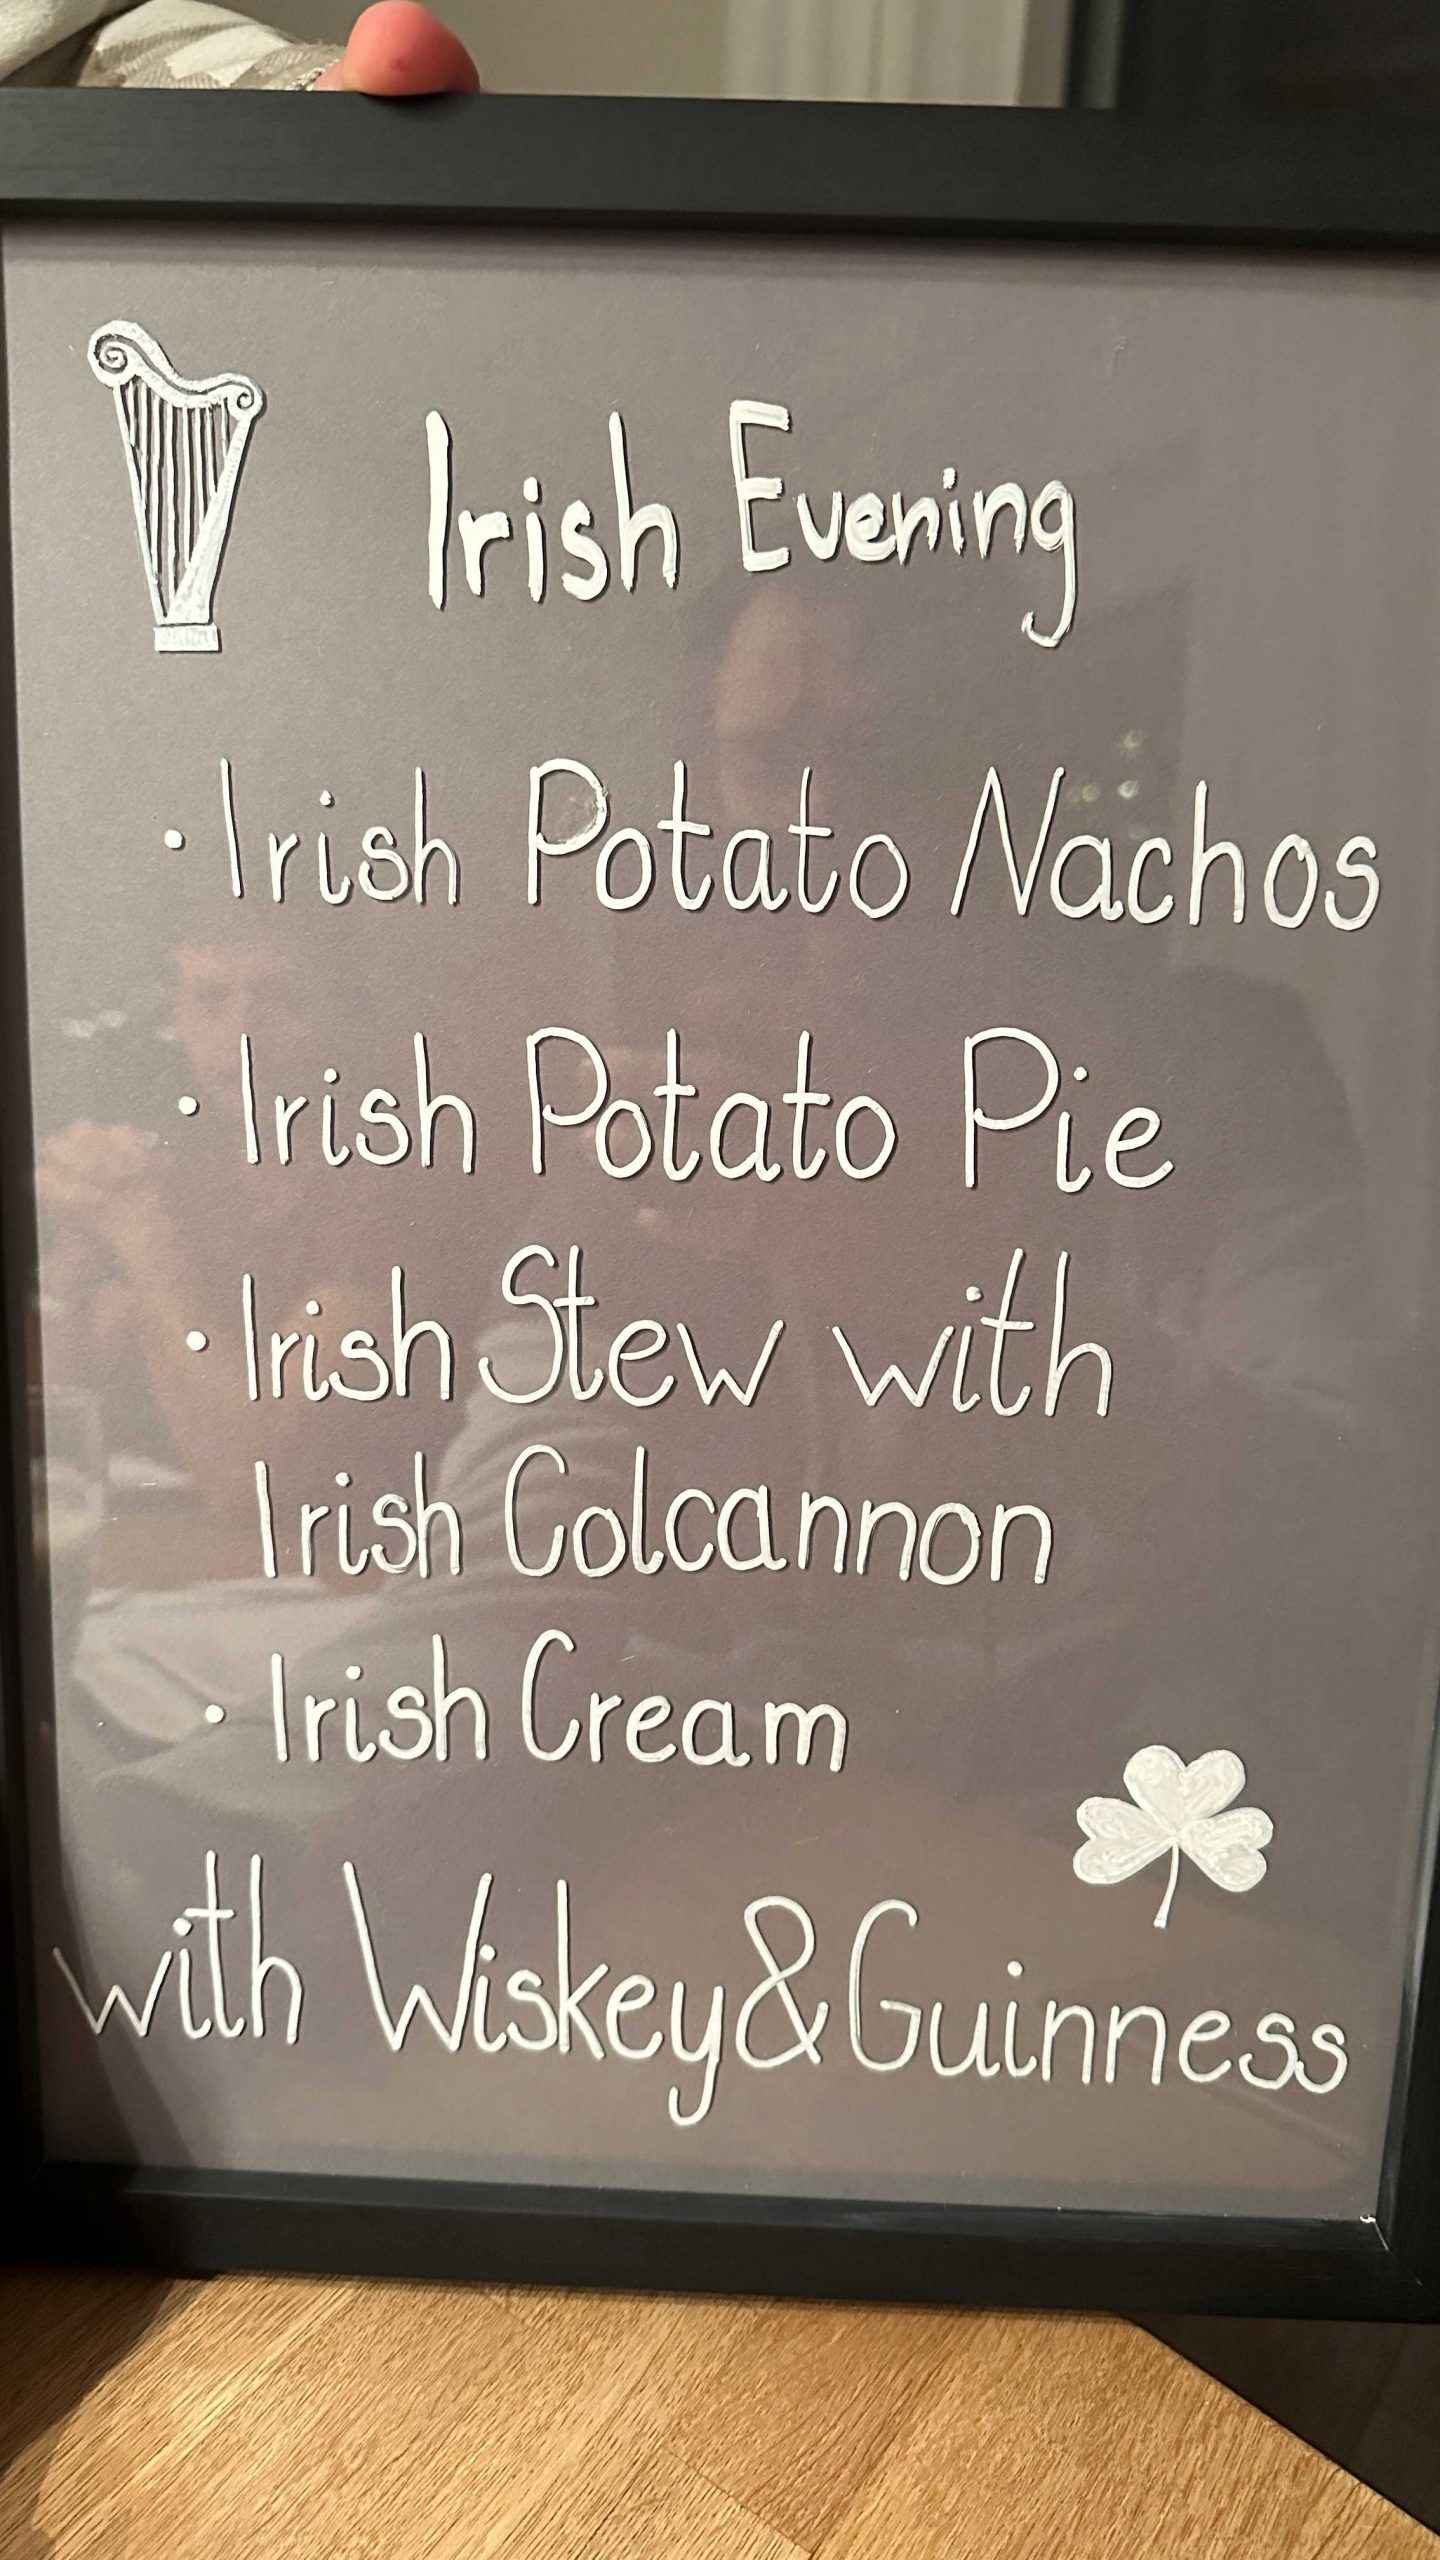 Irish Evening
· Irish Potato Nachos
· Irish Potato Pie
· Irish Stew with
Irish Colcannon
· Irish Cream
with Wiskey & Guinness